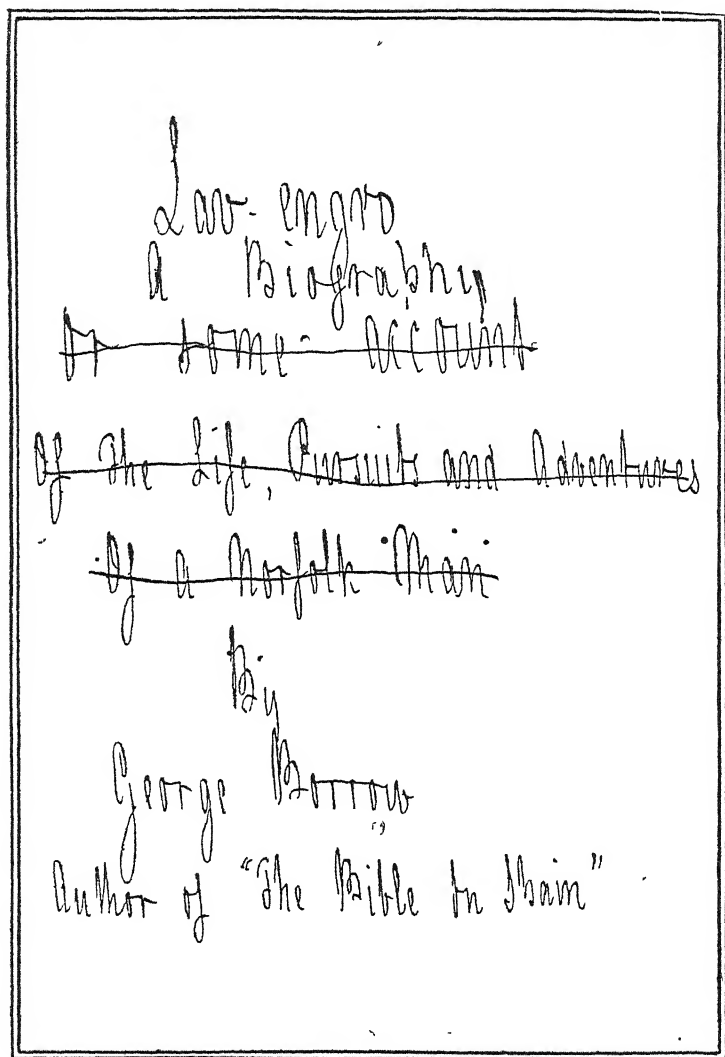 Lav-engro
A Biography
Or some account
Of The Life, Pursuits and Adventures
Of a Norfolk Man
By
George Borrow
Author of "The Bible In Spain"